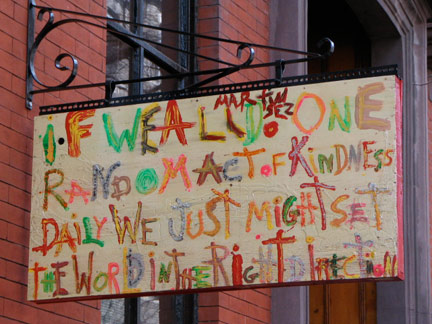 MARTIN
SEZ
iF WE ALL DO ONE
RANDOM ACT OF KiNDNESS
DAILY WE JUST MiGHT SET
THE WORLD IN THE RIGHT DIRECTION